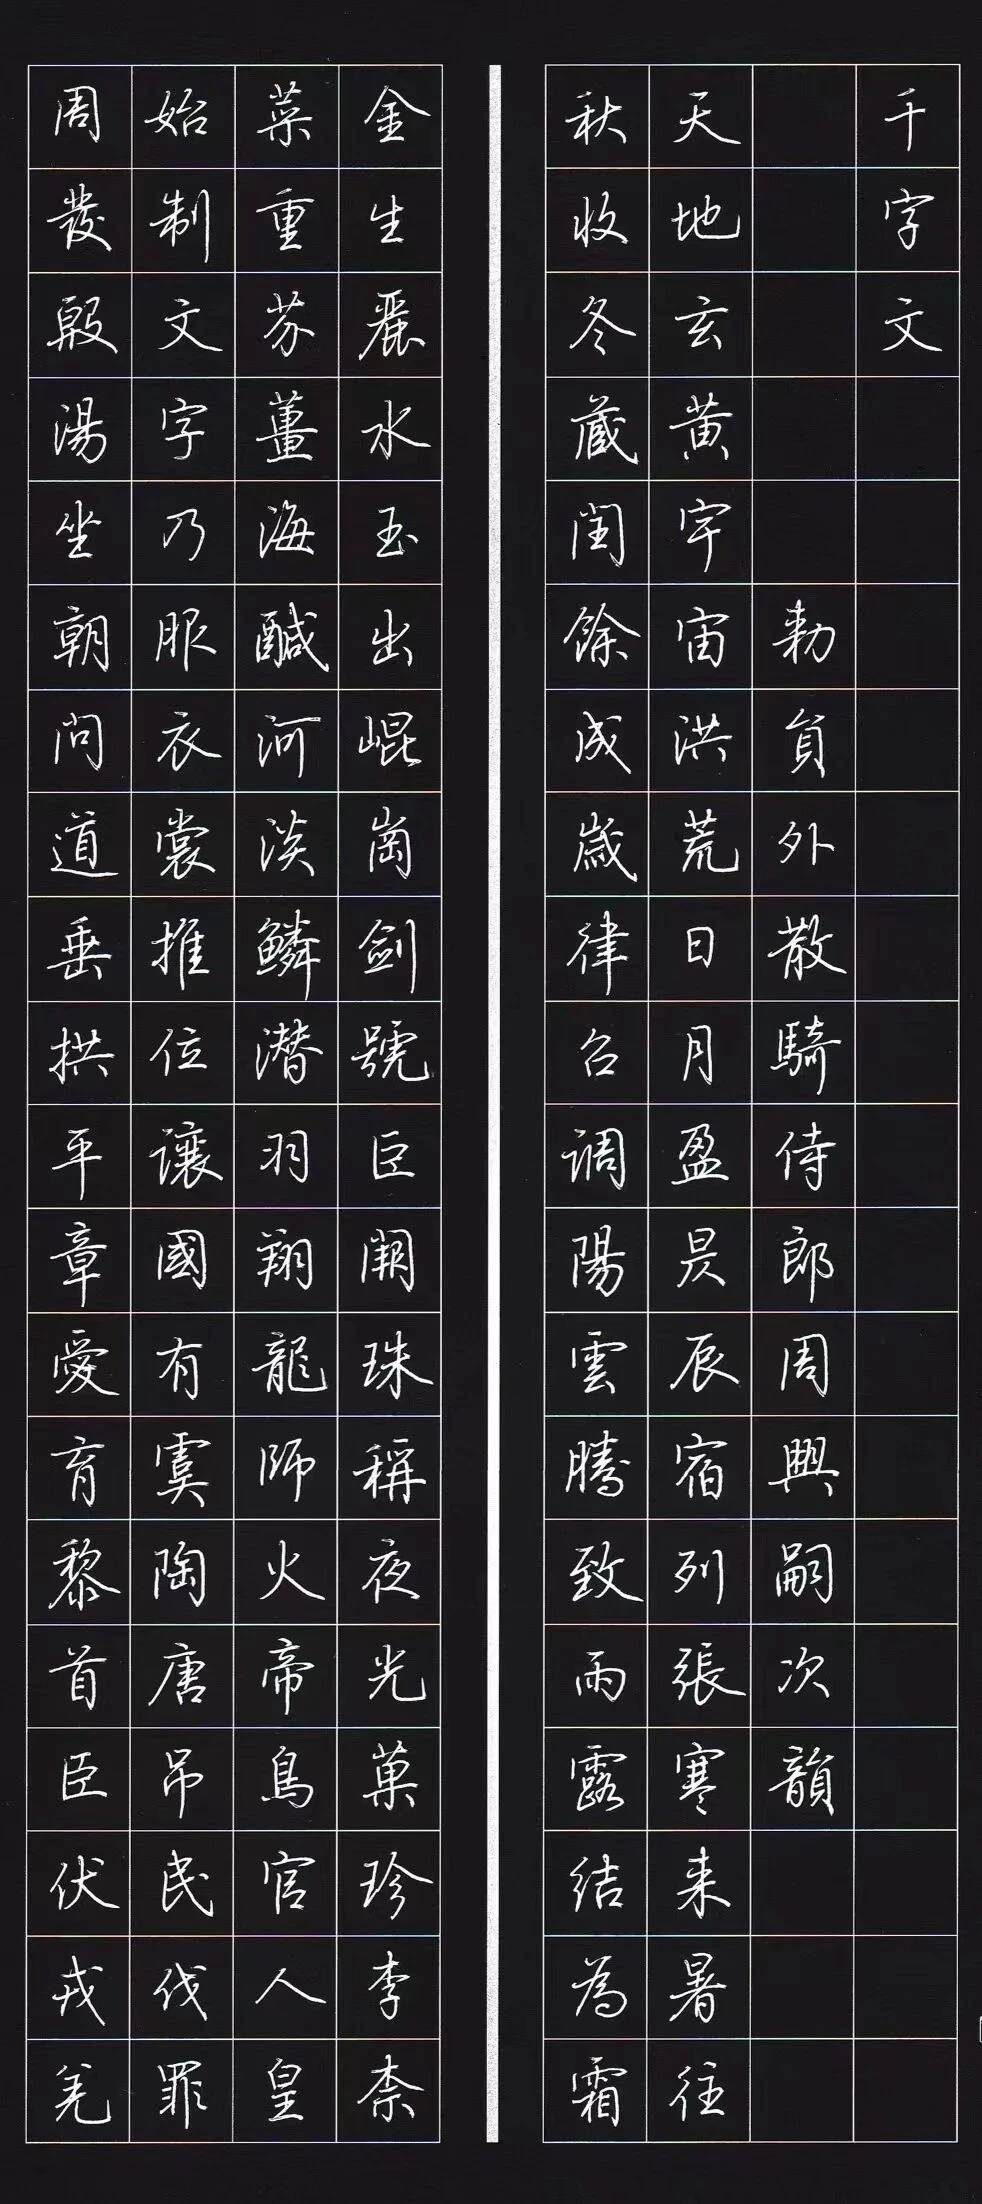 千字文
勅員外散騎侍郎周興嗣次韻
天地玄黃宇宙洪荒日月盈昃辰宿列張寒来暑往
秋收冬藏閏餘成歲律召調陽雲騰致雨露結為霜
金生麗水玉出崐崗劍號巨闕珠稱夜光菓珍李柰
菜重芥薑海醎河淡鱗潛羽翔龍師火帝鳥官人皇
始制文字乃服衣裳推位讓國有虞陶唐吊民伐罪
周發殷湯坐朝問道垂拱平章愛育黎首臣伏戎羌